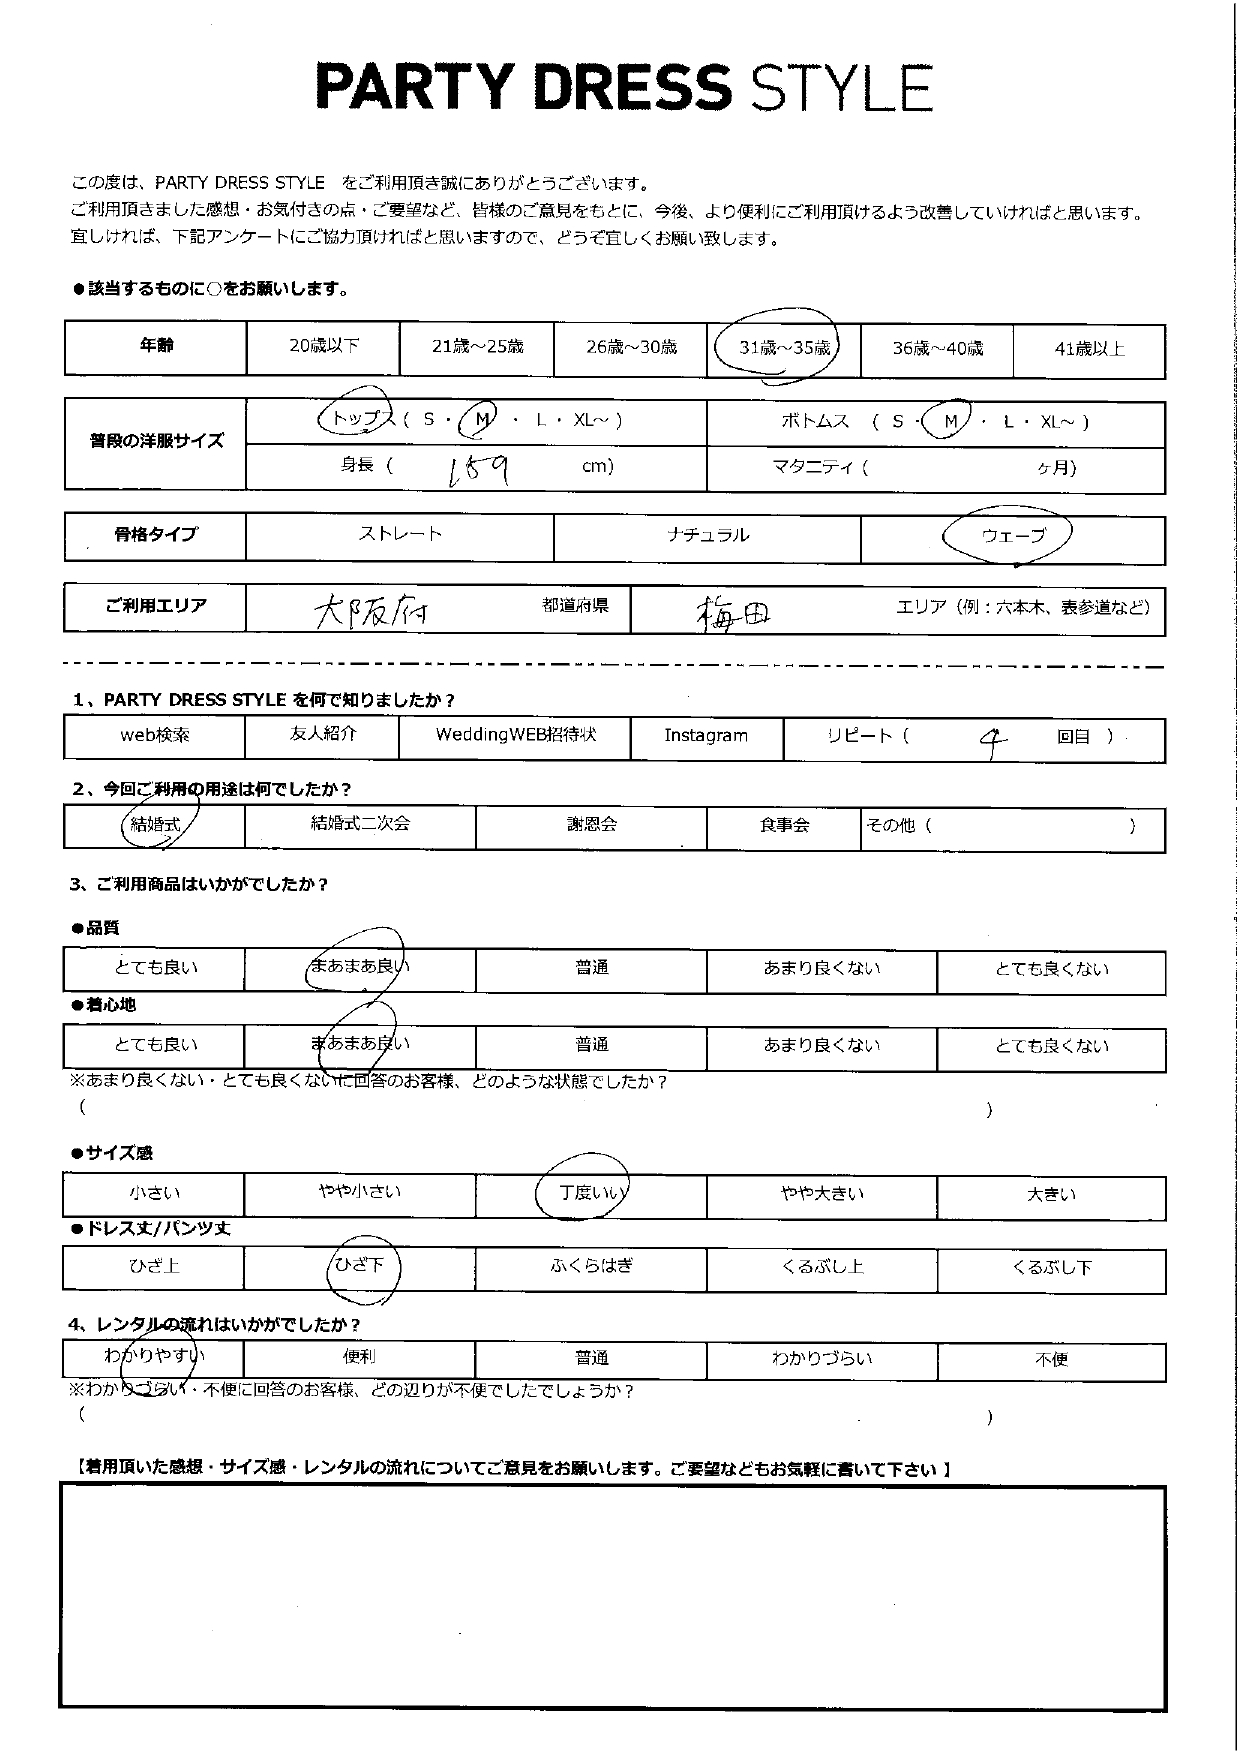 PARTY DRESS STYLE
この度は、PARTY DRESS STYLE をご利用頂き誠にありがとうございます。
ご利用頂きました感想・お気付きの点・ご要望など、皆様のご意見をもとに、今後、より便利にご利用頂けるよう改善していければと思います。
宜しければ、下記アンケートにご協力頂ければと思いますので、どうぞ宜しくお願い致します。
●該当するものに○をお願いします。
年齢 20歳以下 21歳～25歳 26歳～30歳 31歳～35歳 36歳～40歳 41歳以上
普段の洋服サイズ トップス ( S ・ M ・ L ・ XL～ ) ボトムス ( S ・ M ・ L ・ XL～ )
身長 ( 159 cm) マタニティ ( ヶ月)
骨格タイプ ストレート ナチュラル ウェーブ
ご利用エリア 大阪府 都道府県 梅田 エリア (例：六本木、表参道など)
1、PARTY DRESS STYLE を何で知りましたか？
web検索 友人紹介 WeddingWEB招待状 Instagram リピート ( 4 回目 )
2、今回ご利用の用途は何でしたか？
結婚式 結婚式二次会 謝恩会 食事会 その他 ( )
3、ご利用商品はいかがでしたか？
●品質
とても良い まあまあ良い 普通 あまり良くない とても良くない
●着心地
とても良い まあまあ良い 普通 あまり良くない とても良くない
※あまり良くない・とても良くないに回答のお客様、どのような状態でしたか？
( )
●サイズ感
小さい やや小さい 丁度いい やや大きい 大きい
●ドレス丈/パンツ丈
ひざ上 ひざ下 ふくらはぎ くるぶし上 くるぶし下
4、レンタルの流れはいかがでしたか？
わかりやすい 便利 普通 わかりづらい 不便
※わかりづらい・不便に回答のお客様、どの辺りが不便でしたでしょうか？
( )
【着用頂いた感想・サイズ感・レンタルの流れについてご意見をお願いします。ご要望などもお気軽に書いて下さい 】